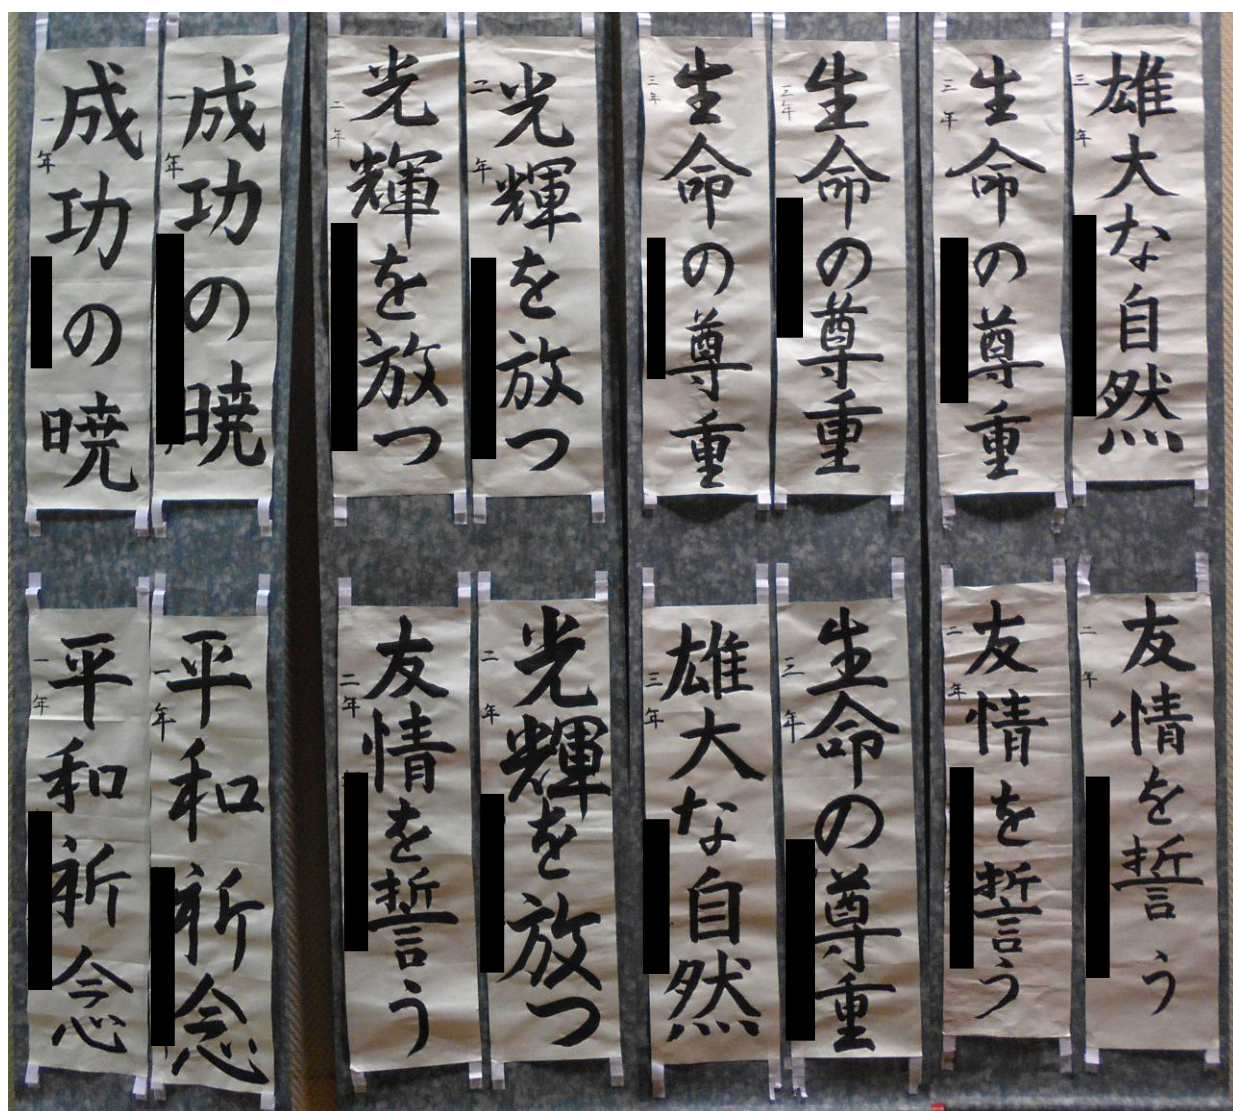 雄大な自然
三年
生命の尊重
三年
生命の尊重
三年
生命の尊重
三年
光輝を放つ
二年
光輝を放つ
二年
成功の暁
一年
成功の暁
一年
友情を誓う
二年
友情を誓う
二年
生命の尊重
三年
雄大な自然
三年
光輝を放つ
二年
友情を誓う
二年
平和祈念
一年
平和祈念
一年